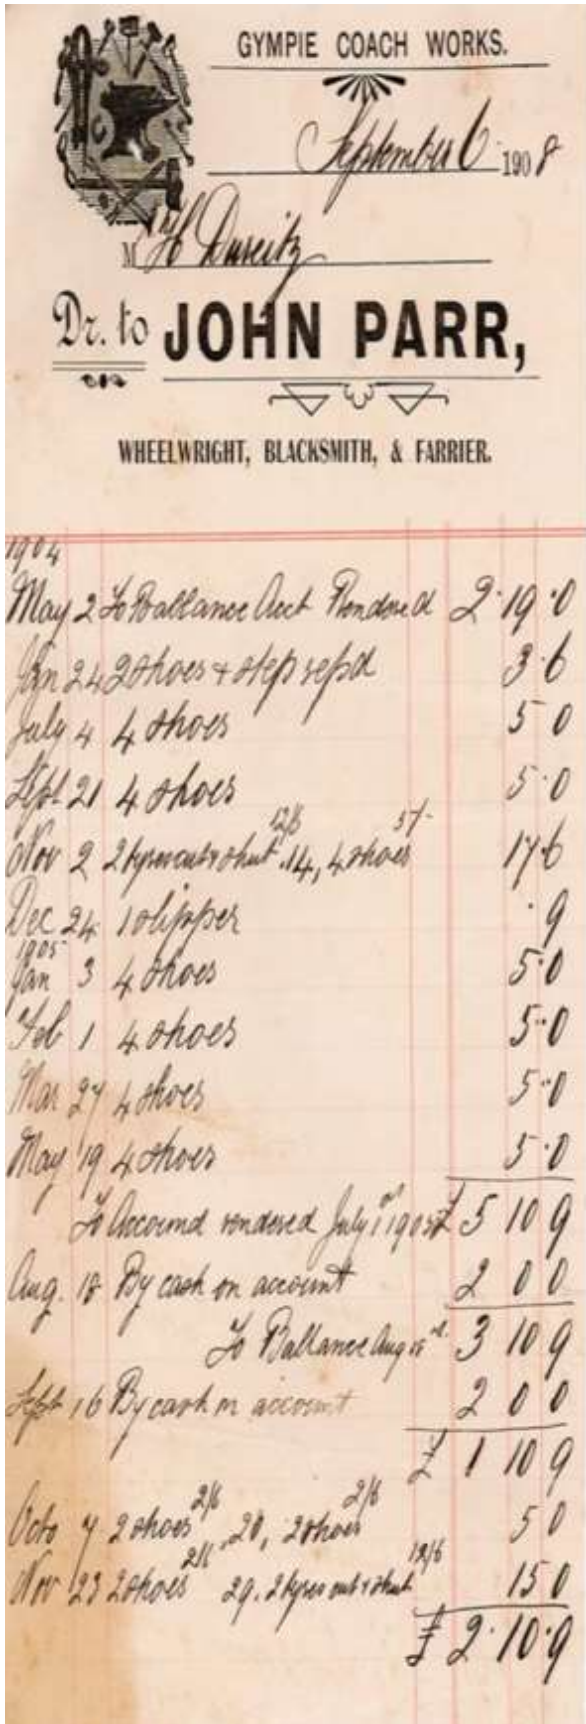 GYMPIE COACH WORKS.
September 6 1908
M H Dureitz
Dr. to JOHN PARR,
WHEELWRIGHT, BLACKSMITH, & FARRIER.
1904
May 2 To Ballance Acct Rendered 2.19.0
24 2 shoes & step repd 3.6
July 4 4 shoes 5 0
Sept 21 4 shoes 5.0
Nov 2 2 tyres cut & shut 12/6 .14, 4 shoes 5/- 17.6
Dec 24 1 slipper .9
1905
Jan 3 4 shoes 5.0
Feb 1 4 shoes 5.0
Mar 27 4 shoes 5.0
May 19 4 shoes 5.0
To Accound rendered July 1st 1905 £ 5 10 9
Aug. 18 By cash on account 2 0 0
To Ballance Aug 3 10 9
Sept 16 By cash on account 2 0 0
£ 1 10 9
Octo 7 2 shoes 2/6 .20, 2 shoes 2/6 5 0
Nov 23 2 shoes 2/6 29. 2 tyres cut & shut 12/6 15 0
£ 2.10.9